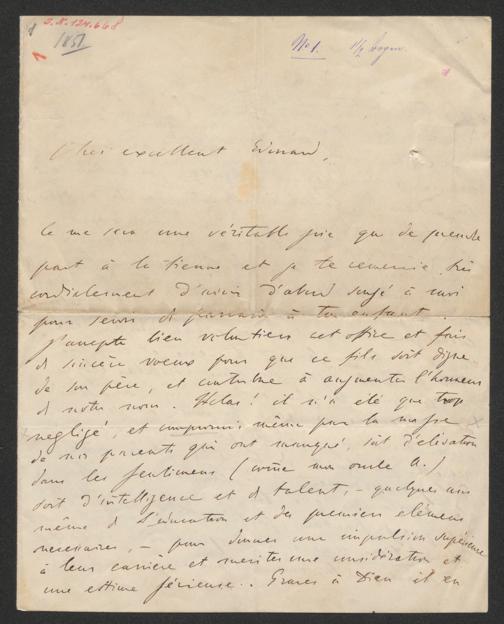 J.N. 124.668
1857
1
No 1. 1/2 Bogen
Cher excellent Eduard,
Ce me sera une véritable joie que de prendre
part à la tienne et je te remercie très
cordialement d'avoir d'abord songé à moi
pour servir de parrain à ton enfant.
J'accepte bien volontiers cet office et fais
de sincères voeux pour que ce fils soit digne
de son père, et contribue à augmenter l'honneur
de notre nom. Hélas! il n'a été que trop
négligé, et compromis même par la masse
de nos parents qui ont manqué, soit d'élévation
dans les sentimens (comme mon oncle A.)
soit d'intelligence et de talent, – quelques uns
même d'éducation et des premiers élémens
nécessaires, – pour donner une impulsion supérieure
à leur carrière et mériter une considération et
une estime sérieuse. Graces à Dieu il en